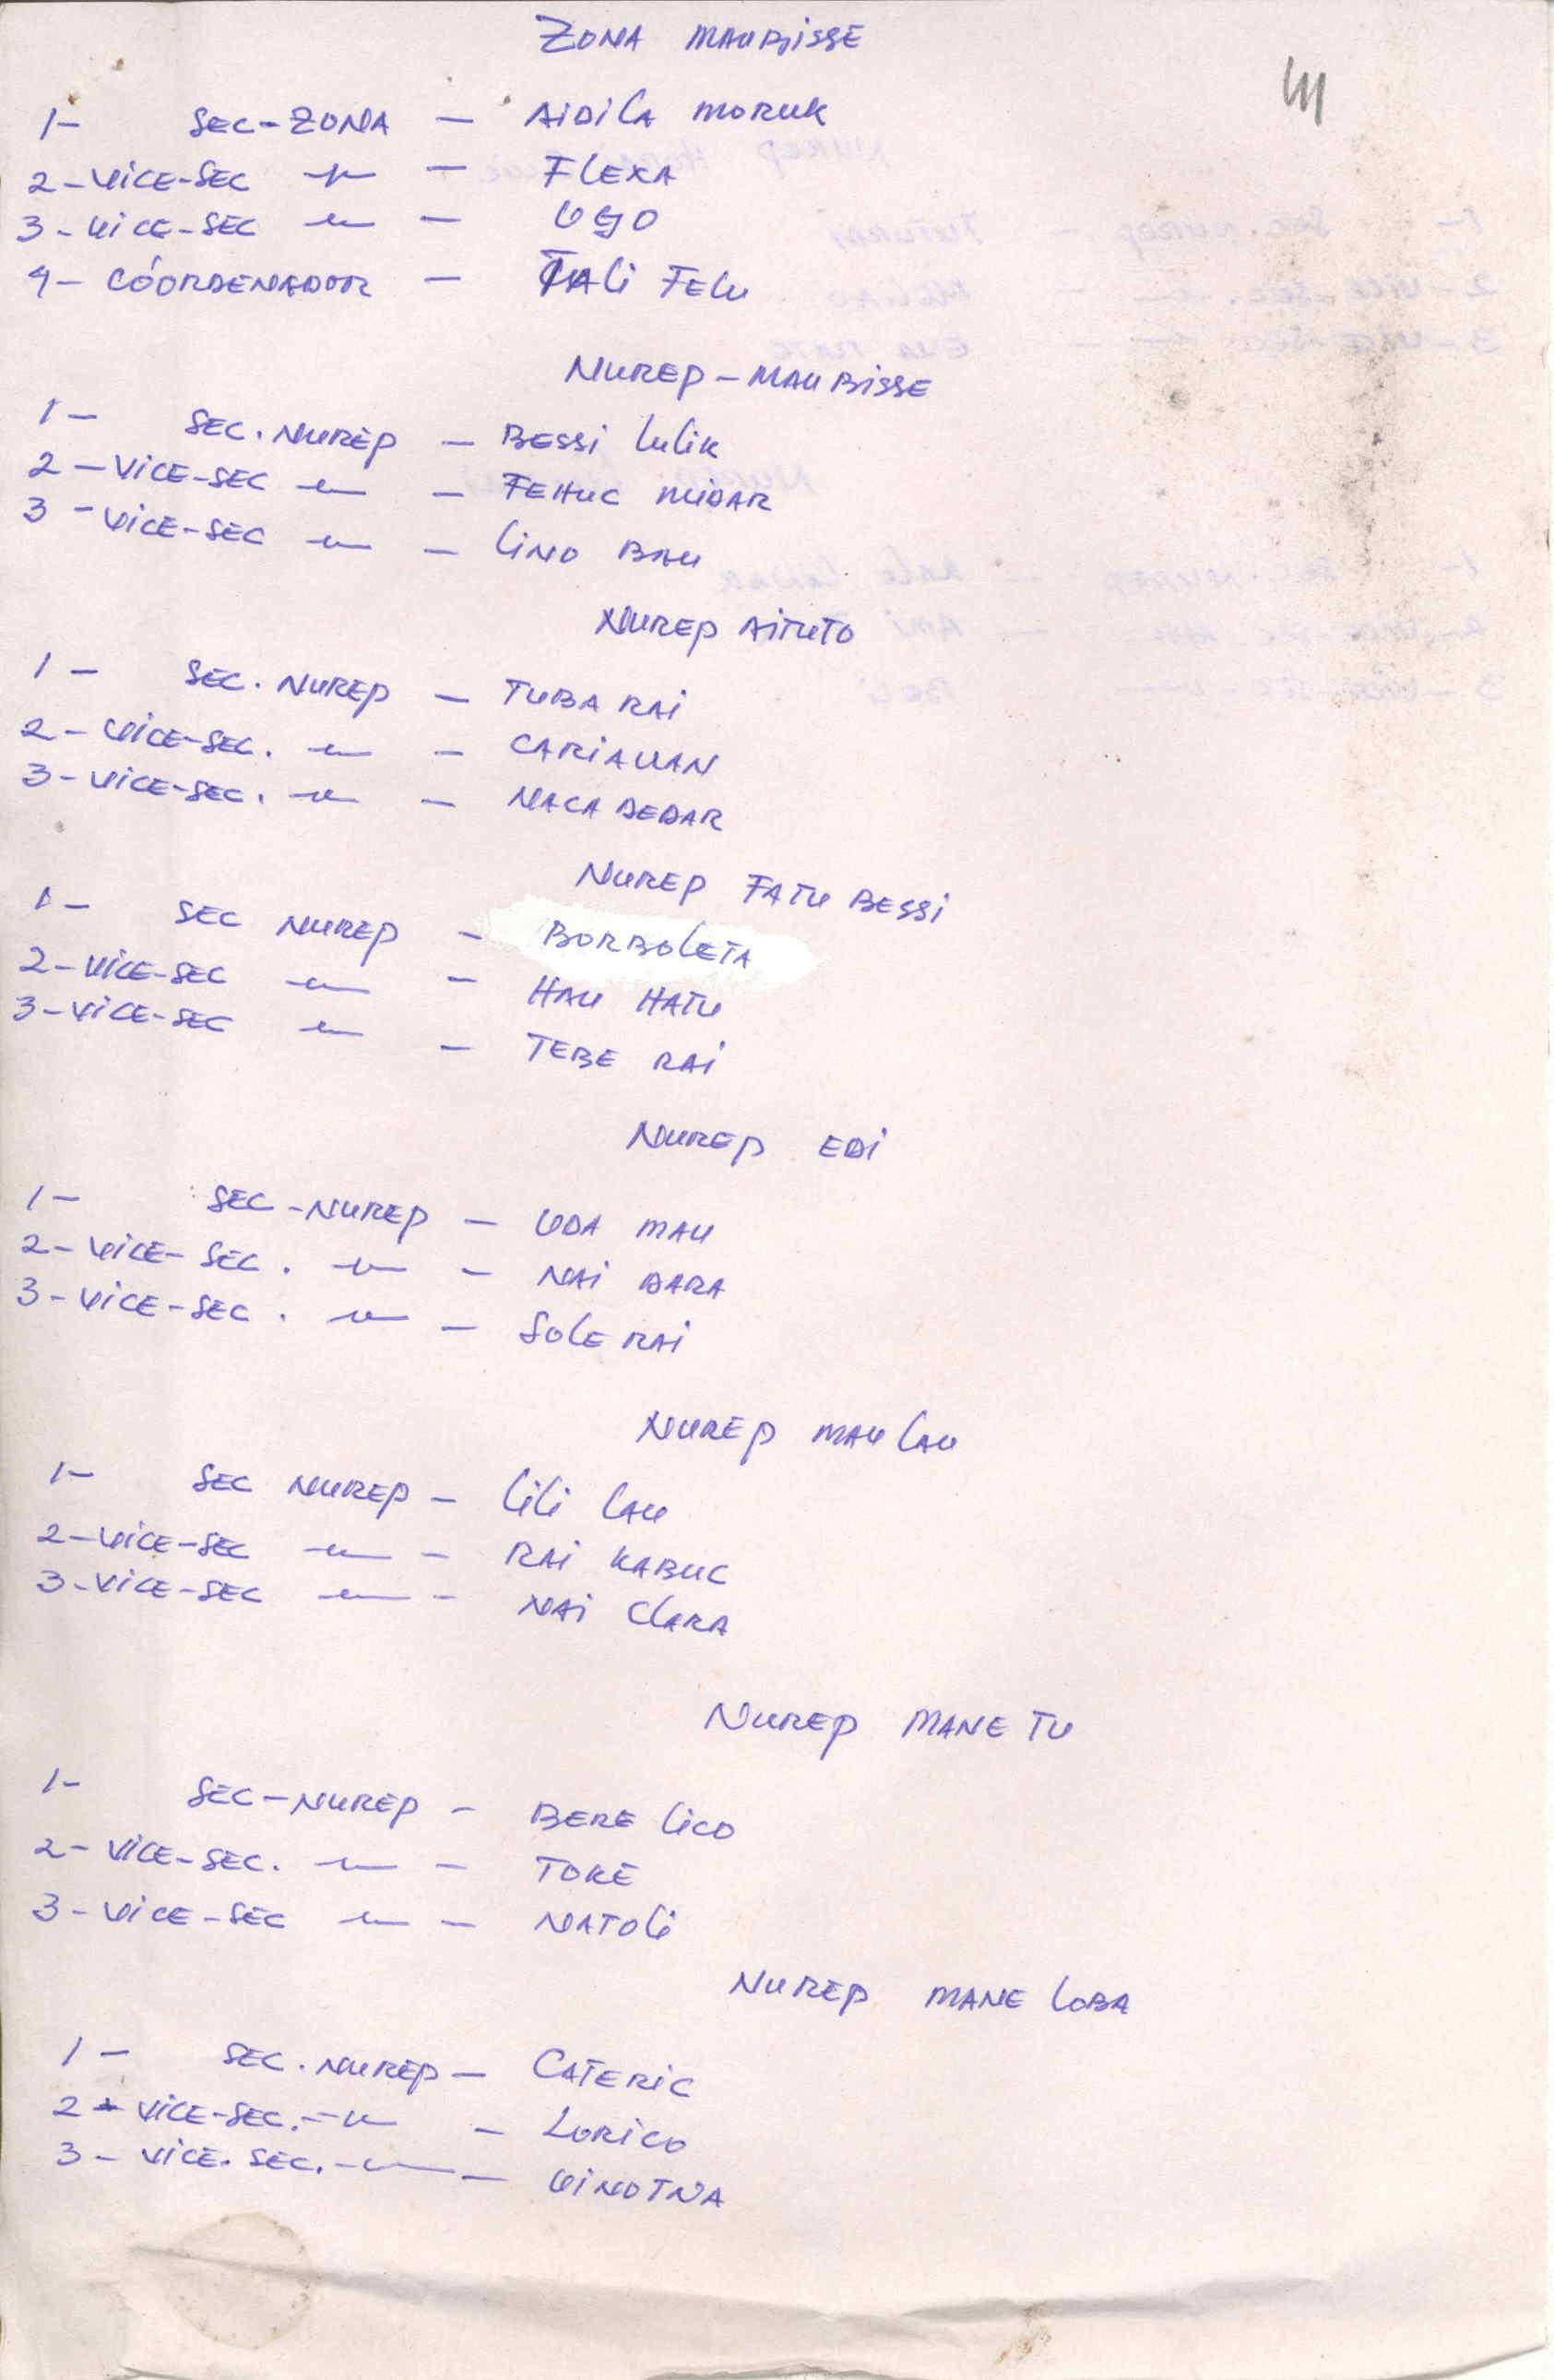 ZONA MAUBISSE
1- SEC-ZONA — AIDILA MORUK
2-VICE-SEC —〃— — FLEXA
3-VICE-SEC —〃— — UGO
4- CÓORDENADOR — TALI FELU
NUREP-MAUBISSE
1- SEC.NUREP — BESSI LULIK
2-VICE-SEC —〃— — FEHUC MIDAR
3-VICE-SEC —〃— — LINO BAU
NUREP AITUTO
1- SEC.NUREP — TUBA RAI
2-VICE-SEC. —〃— — CARIAUAN
3-VICE-SEC. —〃— — NACA DEDAR
NUREP FATU BESSI
1- SEC NUREP — BORBOLETA
2-VICE-SEC —〃— — HAU HATU
3-VICE-SEC —〃— — TEBE RAI
NUREP EDI
1- SEC-NUREP — UDA MAU
2-VICE-SEC. —〃— — NAI DARA
3-VICE-SEC. —〃— — SOLE RAI
NUREP MAU LAU
1- SEC NUREP — LILI LAU
2-VICE-SEC —〃— — RAI KABUC
3-VICE-SEC —〃— — NAI CLARA
NUREP MANE TU
1- SEC-NUREP — BERE LICO
2-VICE-SEC. —〃— — TOKE
3-VICE-SEC —〃— — NATOLI
NUREP MANE LOBA
1- SEC.NUREP — CATERIC
2-VICE-SEC. —〃— — LORICO
3-VICE.SEC. —〃— — VINOTNA